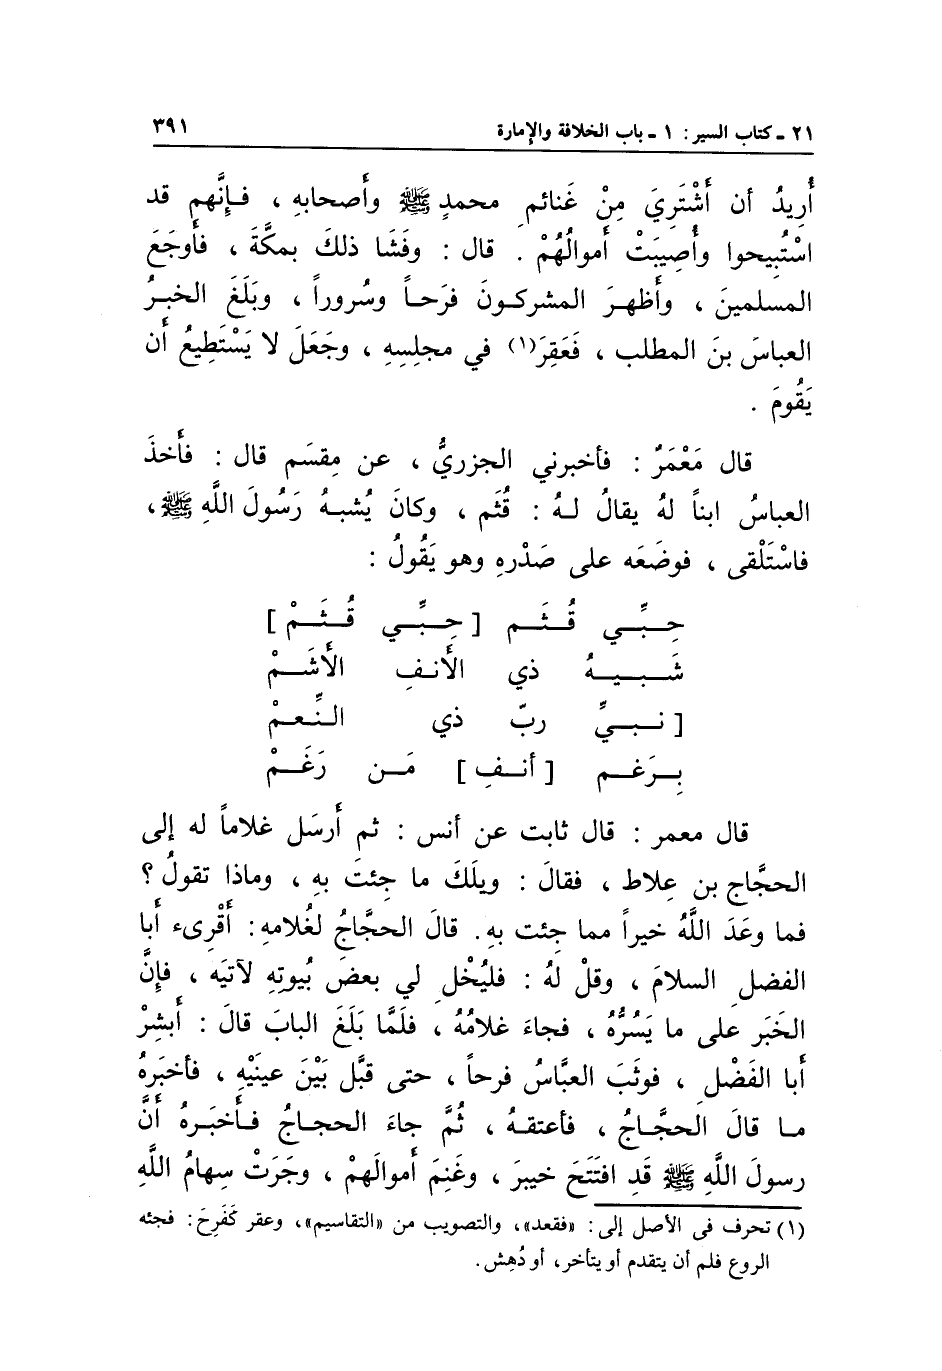 ٢١ ـ كتاب السير : ١ ـ باب الخلافة والإمارة ٣٩١
أُرِيدُ أن أَشْتَرِيَ مِنْ غَنائمِ محمدٍ ﷺ وأَصحابهِ ، فـإِنَّهم قد
اسْتُبِيحوا وأُصِيبَتْ أَموالُهُمْ . قال : وفَشَا ذلكَ بمكَّةَ ، فأَوجَعَ
المسلمينَ ، وأَظهـرَ المشركـونَ فرَحـاً وسُروراً ، وبَلَغَ الخبـرُ
العباسَ بنَ المطلب ، فَعَقِرَ(١) في مجلِسِهِ ، وجَعَلَ لا يَسْتَطِيعُ أَن
يَقُومَ .
قال مَعْمَرٌ : فأخبرني الجزريُّ ، عن مِقسَم قال : فأَخذَ
العباسُ ابناً لهُ يقالُ لـهُ : قُثَم ، وكانَ يُشبـهُ رَسُولَ اللَّهِ ﷺ ،
فاسْتَلْقى ، فوضَعَه على صَدْرهِ وهو يَقُولُ :
حِـبِّـي قُـثَـم [ حِـبِّـي قُـثَـمْ ]
شَـبـيـهُ ذي الأَنـفِ الأَشَـمْ
[ نـبـيِّ ربّ ذي الـنِّـعـمْ
بِـرَغـم [ أنـفِ ] مَـن رَغَـمْ
قال معمر : قال ثابت عن أنس : ثم أَرسَل غلاماً له إلى
الحجَّاج بن عِلاط ، فقالَ : ويلَكَ ما جِئتَ بهِ ، وماذا تقولُ ؟
فما وعَدَ اللَّهُ خيراً مما جئت بهِ. قالَ الحجَّاجُ لغُلامهِ: أَقْرِىء أَبا
الفضلِ السلامَ ، وقلْ لهُ : فليُخْلِ لي بعضَ بُيوتِهِ لآتيَه ، فإِنَّ
الخَبَر على ما يَسُرُّهُ ، فجاءَ غلامُهُ ، فلَمَّا بَلَغَ البابَ قالَ : أَبشِرْ
أبا الفَضْلِ ، فوثَبَ العبَّاسُ فرحاً ، حتى قبَّل بَيْنَ عينَيْهِ ، فأخبَرهُ
مـا قالَ الحجَّـاجُ ، فأعتقـهُ ، ثُمَّ جاءَ الحجـاجُ فـأَخبَـرهُ أَنَّ
رسولَ اللَّهِ ﷺ قَدِ افتَتَحَ خيبرَ ، وغَنِمَ أَموالَهمْ ، وجَرَتْ سِهامُ اللَّهِ
(١) تحرف في الأصل إلى: «فقعد»، والتصويب من «التقاسيم»، وعقر كَفَرِحَ: فجئه
الروع فلم أن يتقدم أو يتأخر، أو دُهِش.